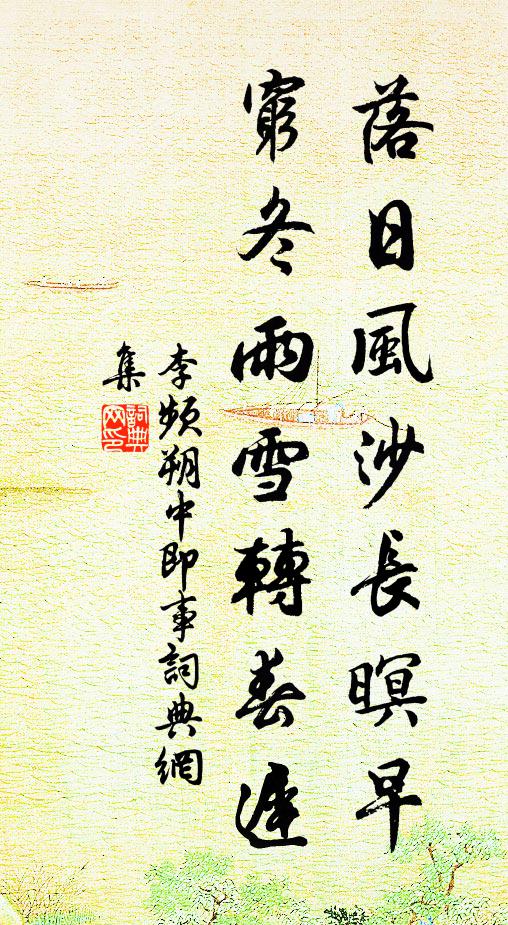 落日風沙長暝早
窮冬雨雪轉春遲
李頻朔中即事詞典網
集
詞典
网印